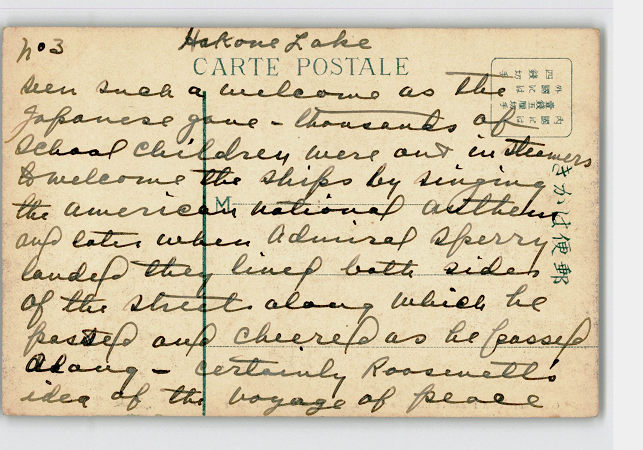 No 3
Hakone Lake
CARTE POSTALE
seen such a welcome as the
Japanese gave - thousands of
School children were out in steamers
to welcome the ships by singing
the american national anthem
and later when Admiral Sperry
landed they lined both sides
of the street along which he
passed and cheered as he passed
along - certainly Roosevelt's
idea of the voyage of peace
M
きかは便郵